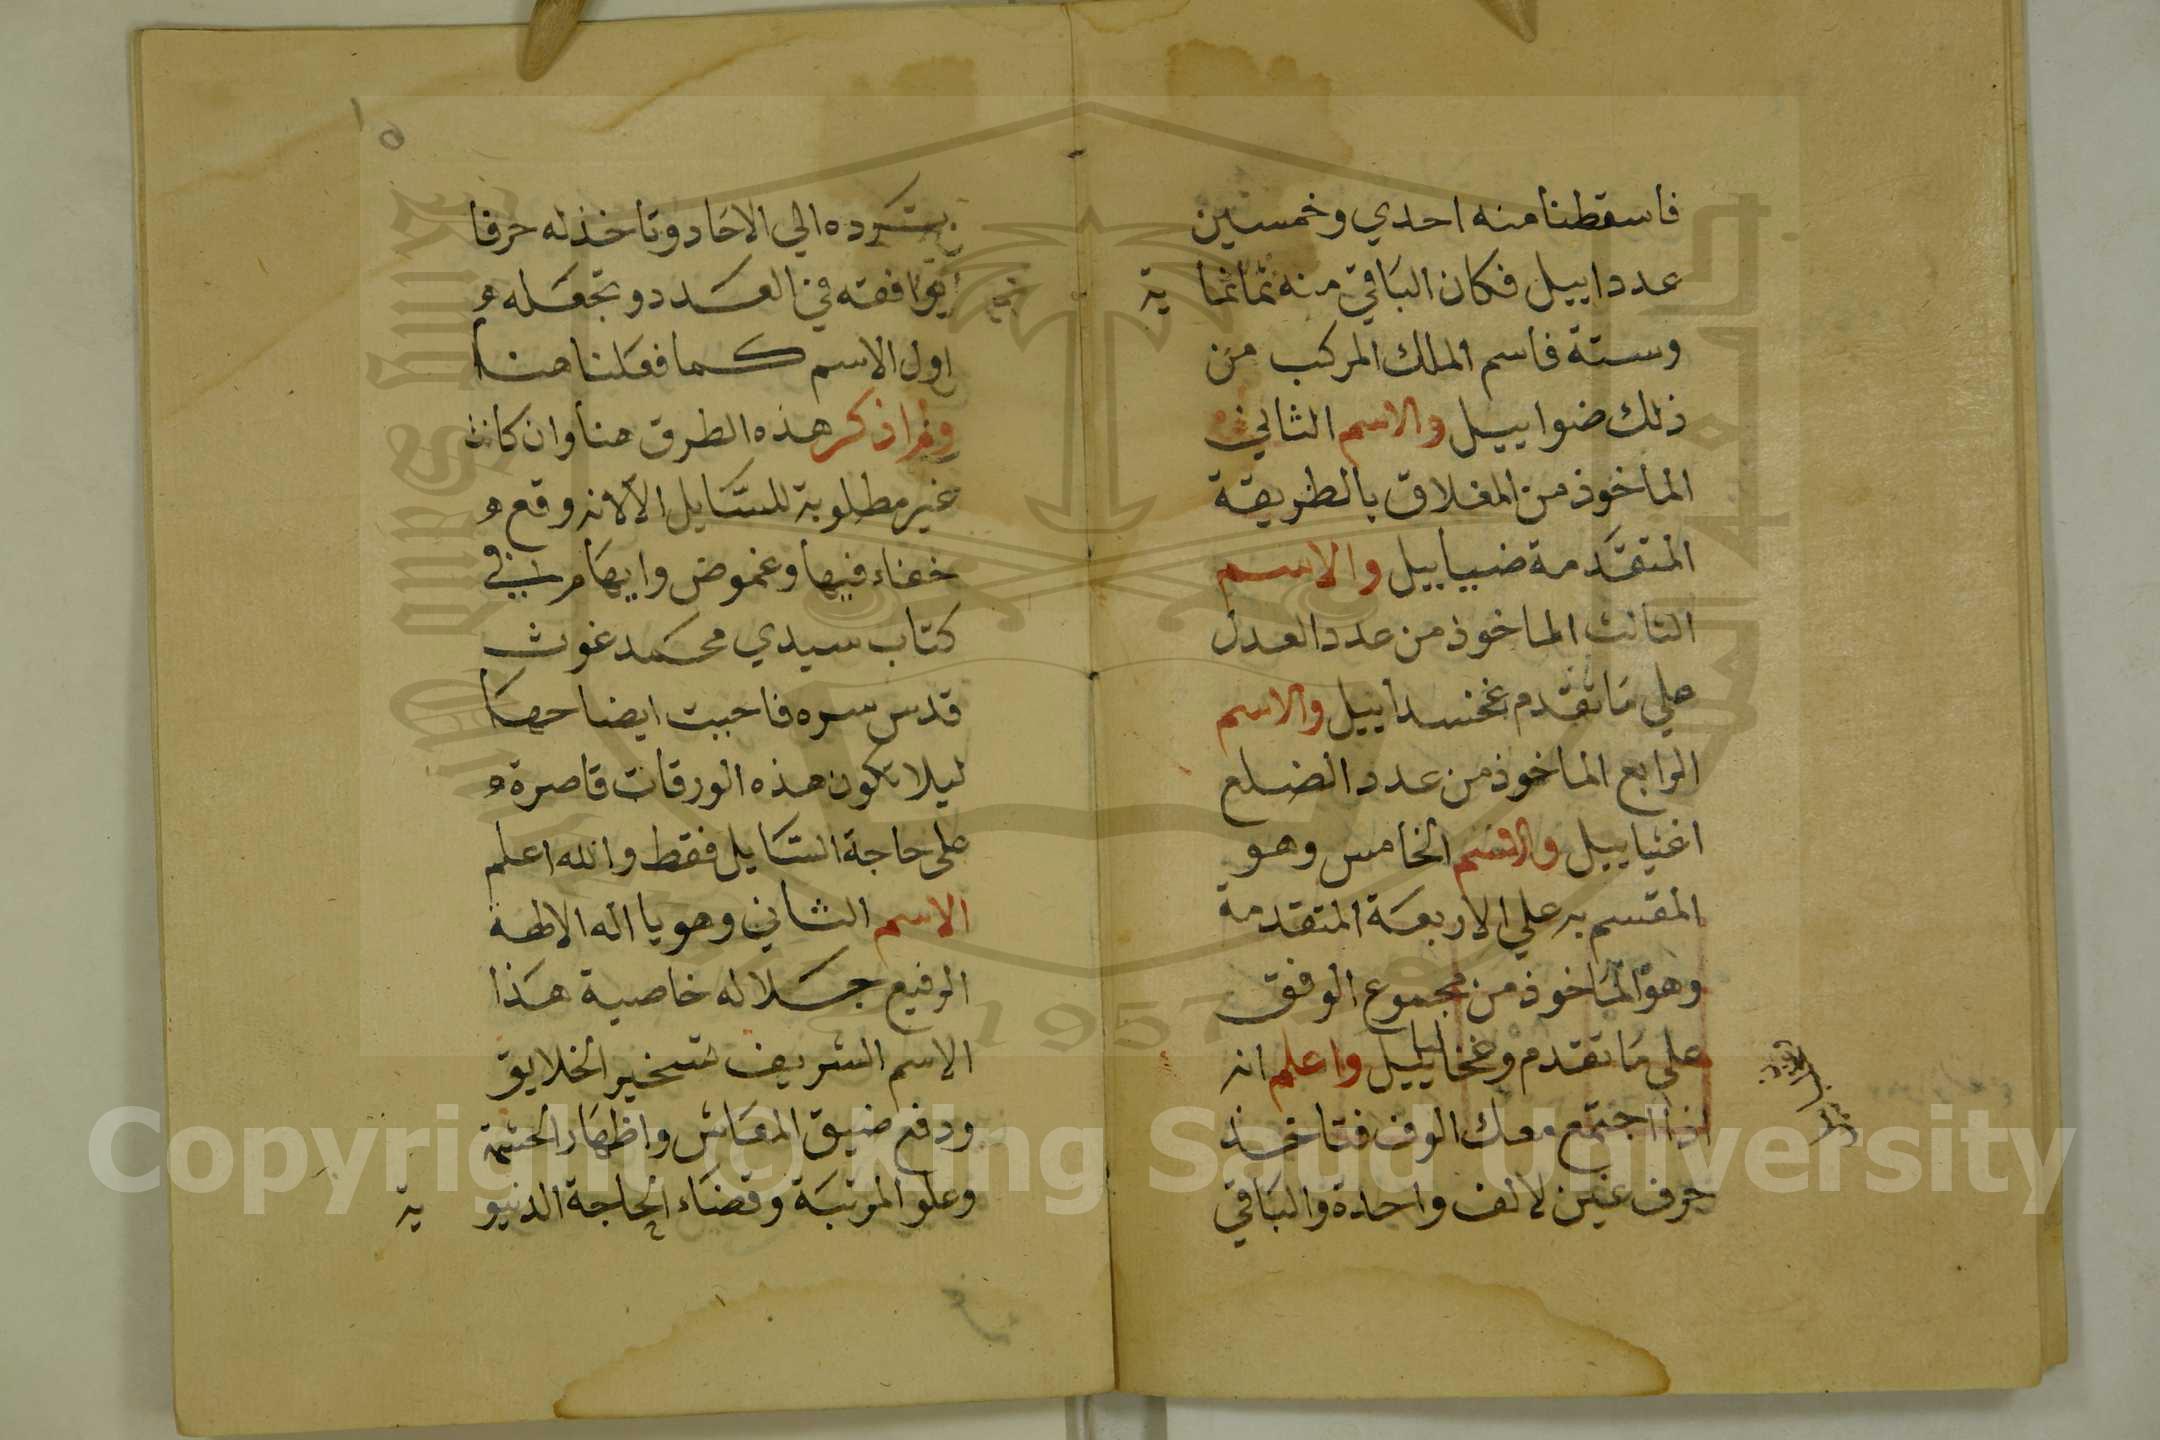 فاسقطنا منه احدي وخمسين
عدد اييل فكان الباقي منه ثمانما ية
وستة فاسم الملك المركب من
ذلك ضواييل والاسم الثاني
الماخوذ من المغلاق بالطريقة
المتقدمة ضيياييل والاسم
الثالث الماخوذ من عدد العدل
علي ما تقدم غخنساييل والاسم
الرابع الماخوذ من عدد الضلع
اغثياييل والاسم الخامس وهو
المقسم به علي الاربعة المتقدمة
وهو الماخوذ من مجموع الوفق
علي ما تقدم وغخاييل واعلم انه
اذا اجتمع معك الوف فتاخذ
حرف غين لالف واحدة والباقي
تسترده الي الاحاد وتاخذ له حرفا
يوافقه في العدد وتجعله
اول الاسم كما فعلنا هنا
وانما ذكر هذه الطرق هنا وان كانت
غير مطلوبة للسايل الا لانه وقع
خفاء فيها وغموض وايهام في
كتاب سيدي محمد غوث
قدس سره فاحببت ايضاحها
ليلا تكون هذه الورقات قاصرة
على حاجة السايل فقط والله اعلم
الاسم الثاني وهو يا اله الالهة
الرفيع جلاله خاصية هذا
الاسم الشريف تسخير الخلايق
ودفع ضيق المعاش واظهار الحشمة
وعلو المرتبة وقضاء الحاجة الدنيو ية
Copyright © King Saud University
1957